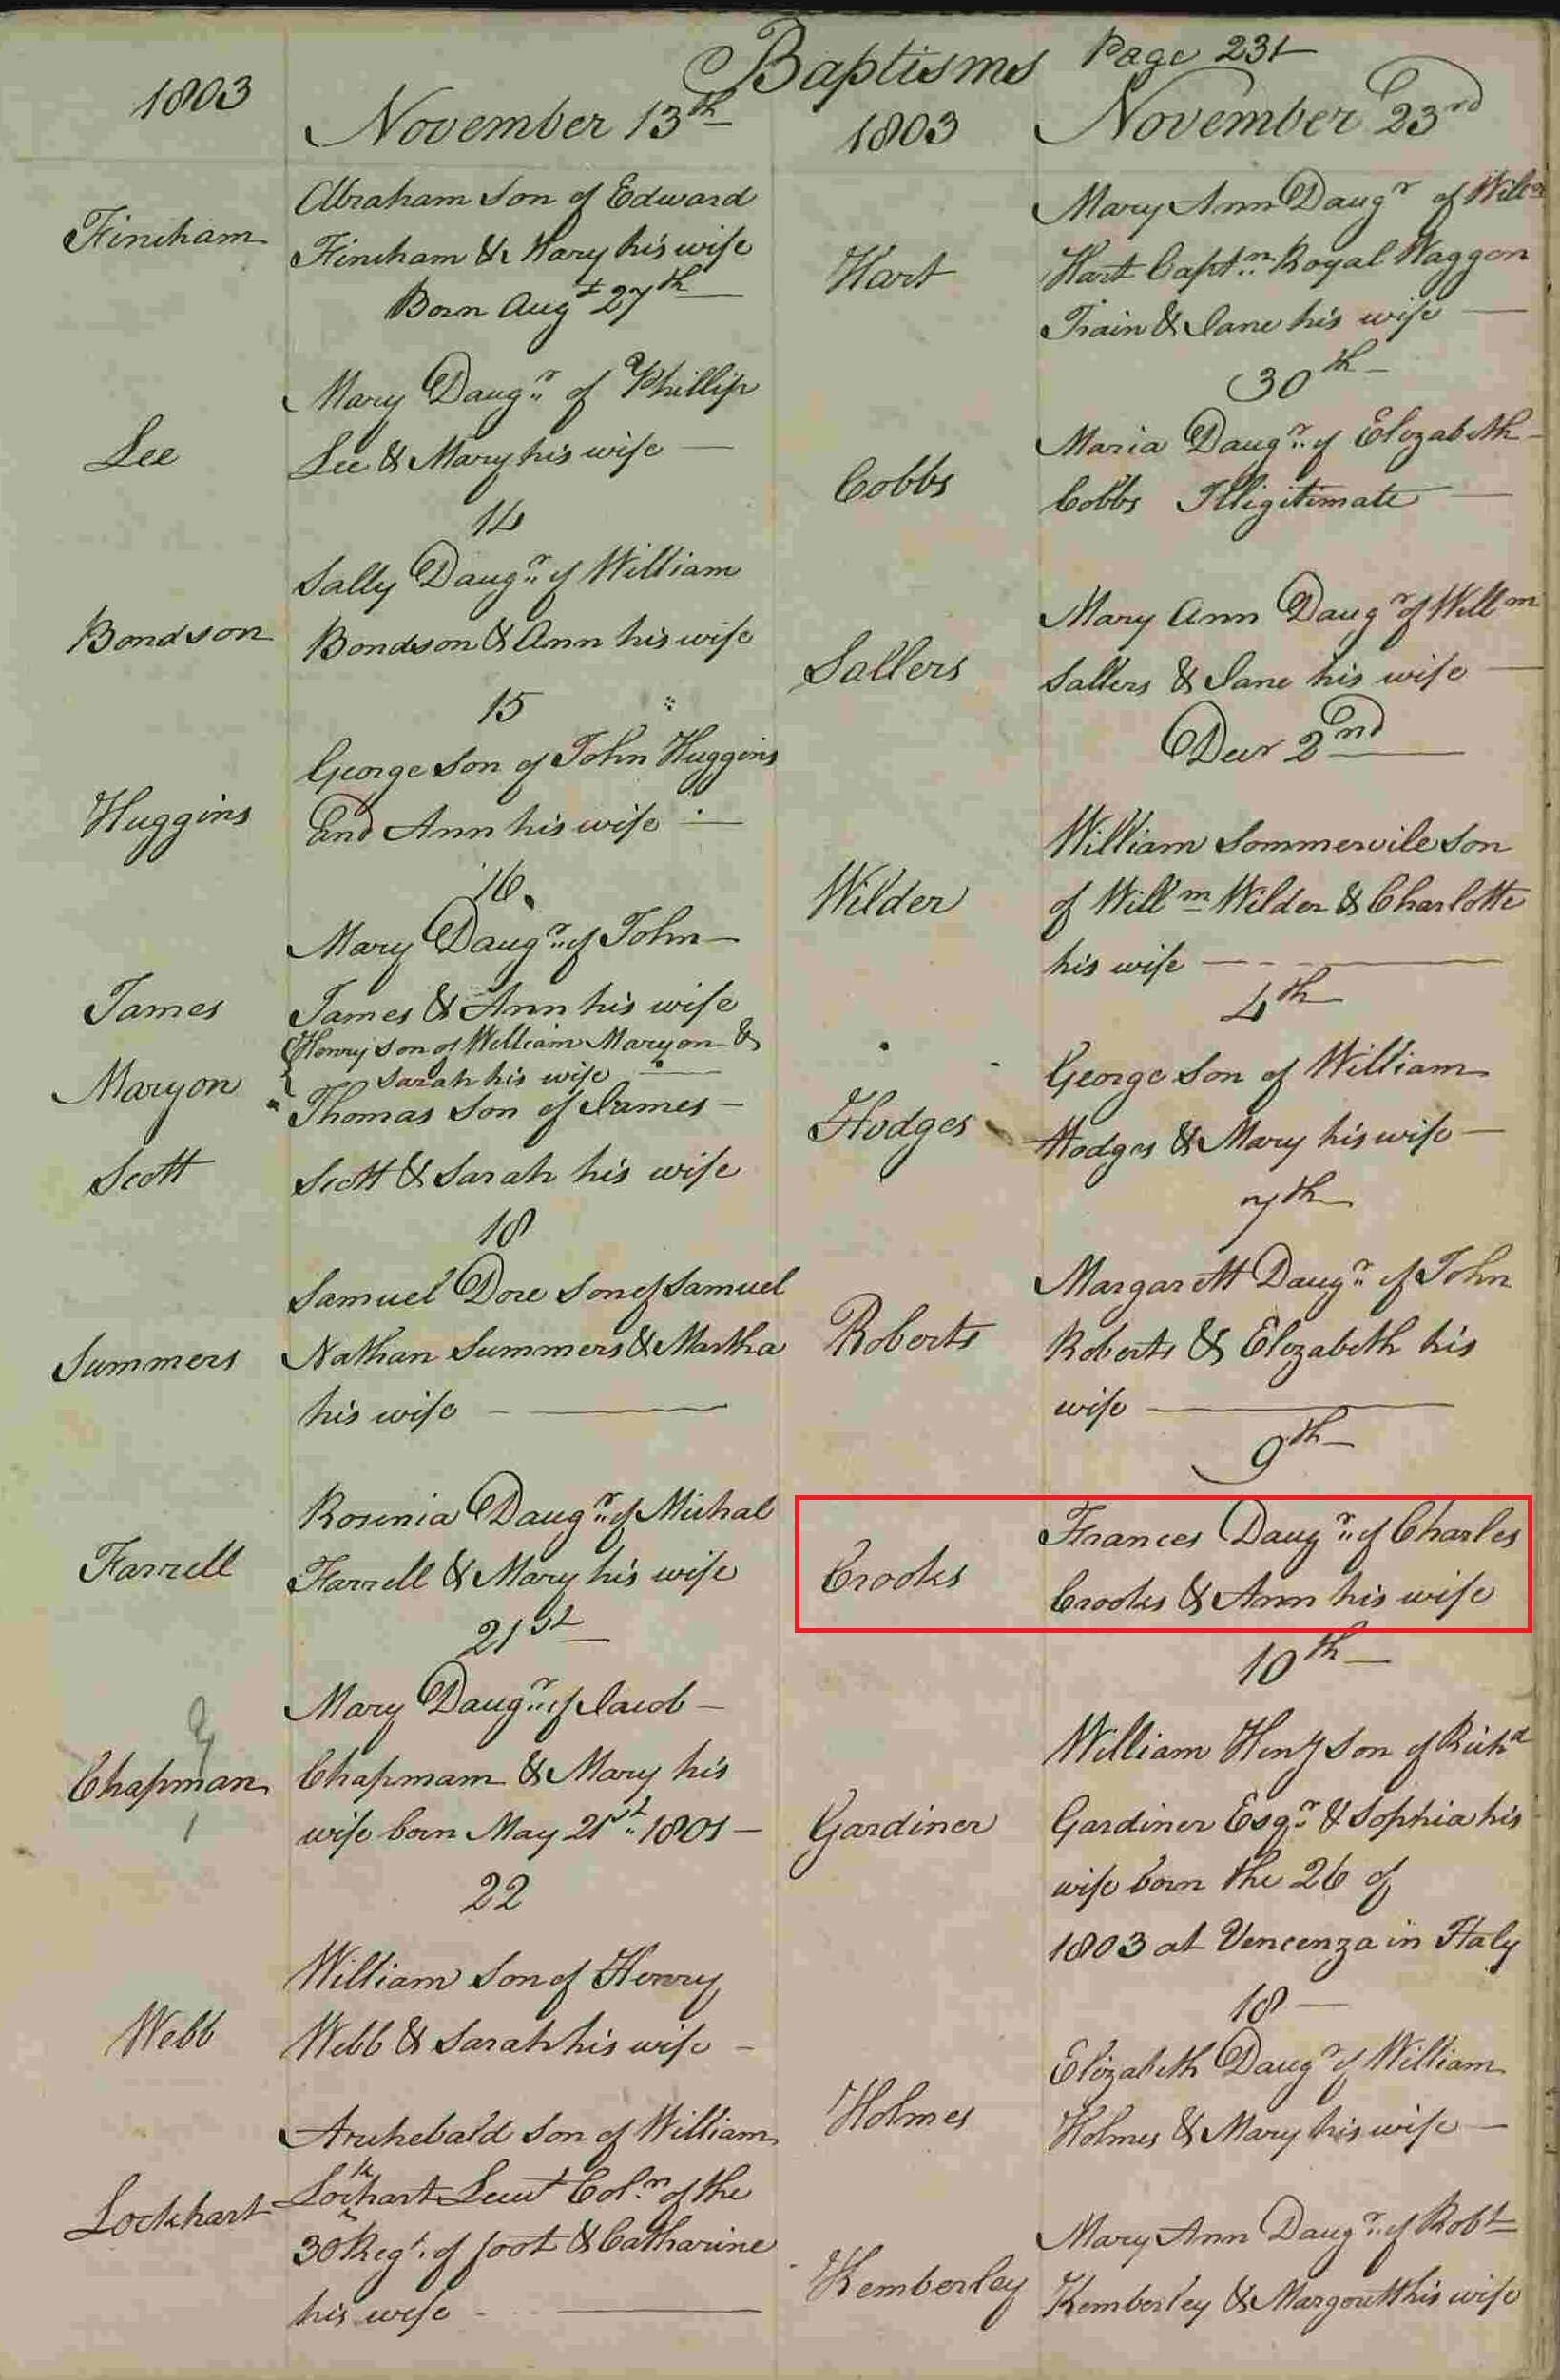 Baptisms Page 231
1803
November 13th
Fincham
Abraham Son of Edward
Fincham & Mary his wife
Born Augt 27th
Lee
Mary Daugr of Phillip
Lee & Mary his wife
14
Bondson
Sally Daugr of William
Bondson & Ann his wife
15
Huggins
George Son of John Huggins
And Ann his wife
16
James
Mary Daugr of John
James & Ann his wife
Maryon
Henry Son of William Maryon &
Sarah his wife
Scott
Thomas Son of James
Scott & Sarah his wife
18
Summers
Samuel Dore Son of Samuel
Nathan Summers & Martha
his wife
Farrell
Rosinia Daugr of Michal
Farrell & Mary his wife
21st
Chapman
Mary Daugr of Jacob
Chapmam & Mary his
wife born May 21st 1801
22
Webb
William Son of Henry
Webb & Sarah his wife
Lockhart
Archebald Son of William
Lockhart Lieut Coln of the
30 Regt. of foot & Catharine
his wife
1803
November 23rd
Hart
Mary Ann Daugr of Willm
Hart Captn Royal Waggon
Train & Jane his wife
30th
Cobbs
Maria Daugr of Elizabeth
Cobbs Illigitimate
Sallers
Mary Ann Daugr of Willm
Sallers & Jane his wife
Decr 2nd
Wilder
William Sommervile Son
of Willm Wilder & Charlotte
his wife
4th
Hodges
George Son of William
Hodges & Mary his wife
7th
Roberts
Margarett Daugr of John
Roberts & Elizabeth his
wife
9th
Crooks
Frances Daugr of Charles
Crooks & Ann his wife
10th
Gardiner
William Heny Son of Richd
Gardiner Esqr & Sophia his
wife born the 26 of
1803 at Vencenza in Italy
18
Holmes
Elizabeth Daugr of William
Holmes & Mary his wife
Kemberley
Mary Ann Daugr of Robt
Kemberley & Margarett his wife